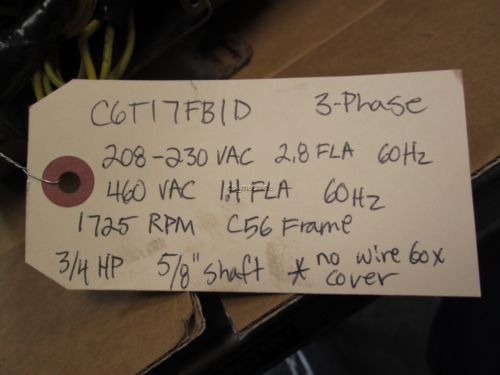 C6T17FB1D 3-Phase
208-230 VAC 2.8 FLA 60Hz
460 VAC 1.4 FLA 60Hz
1725 RPM C56 Frame
3/4 HP 5/8" shaft * no wire box
cover